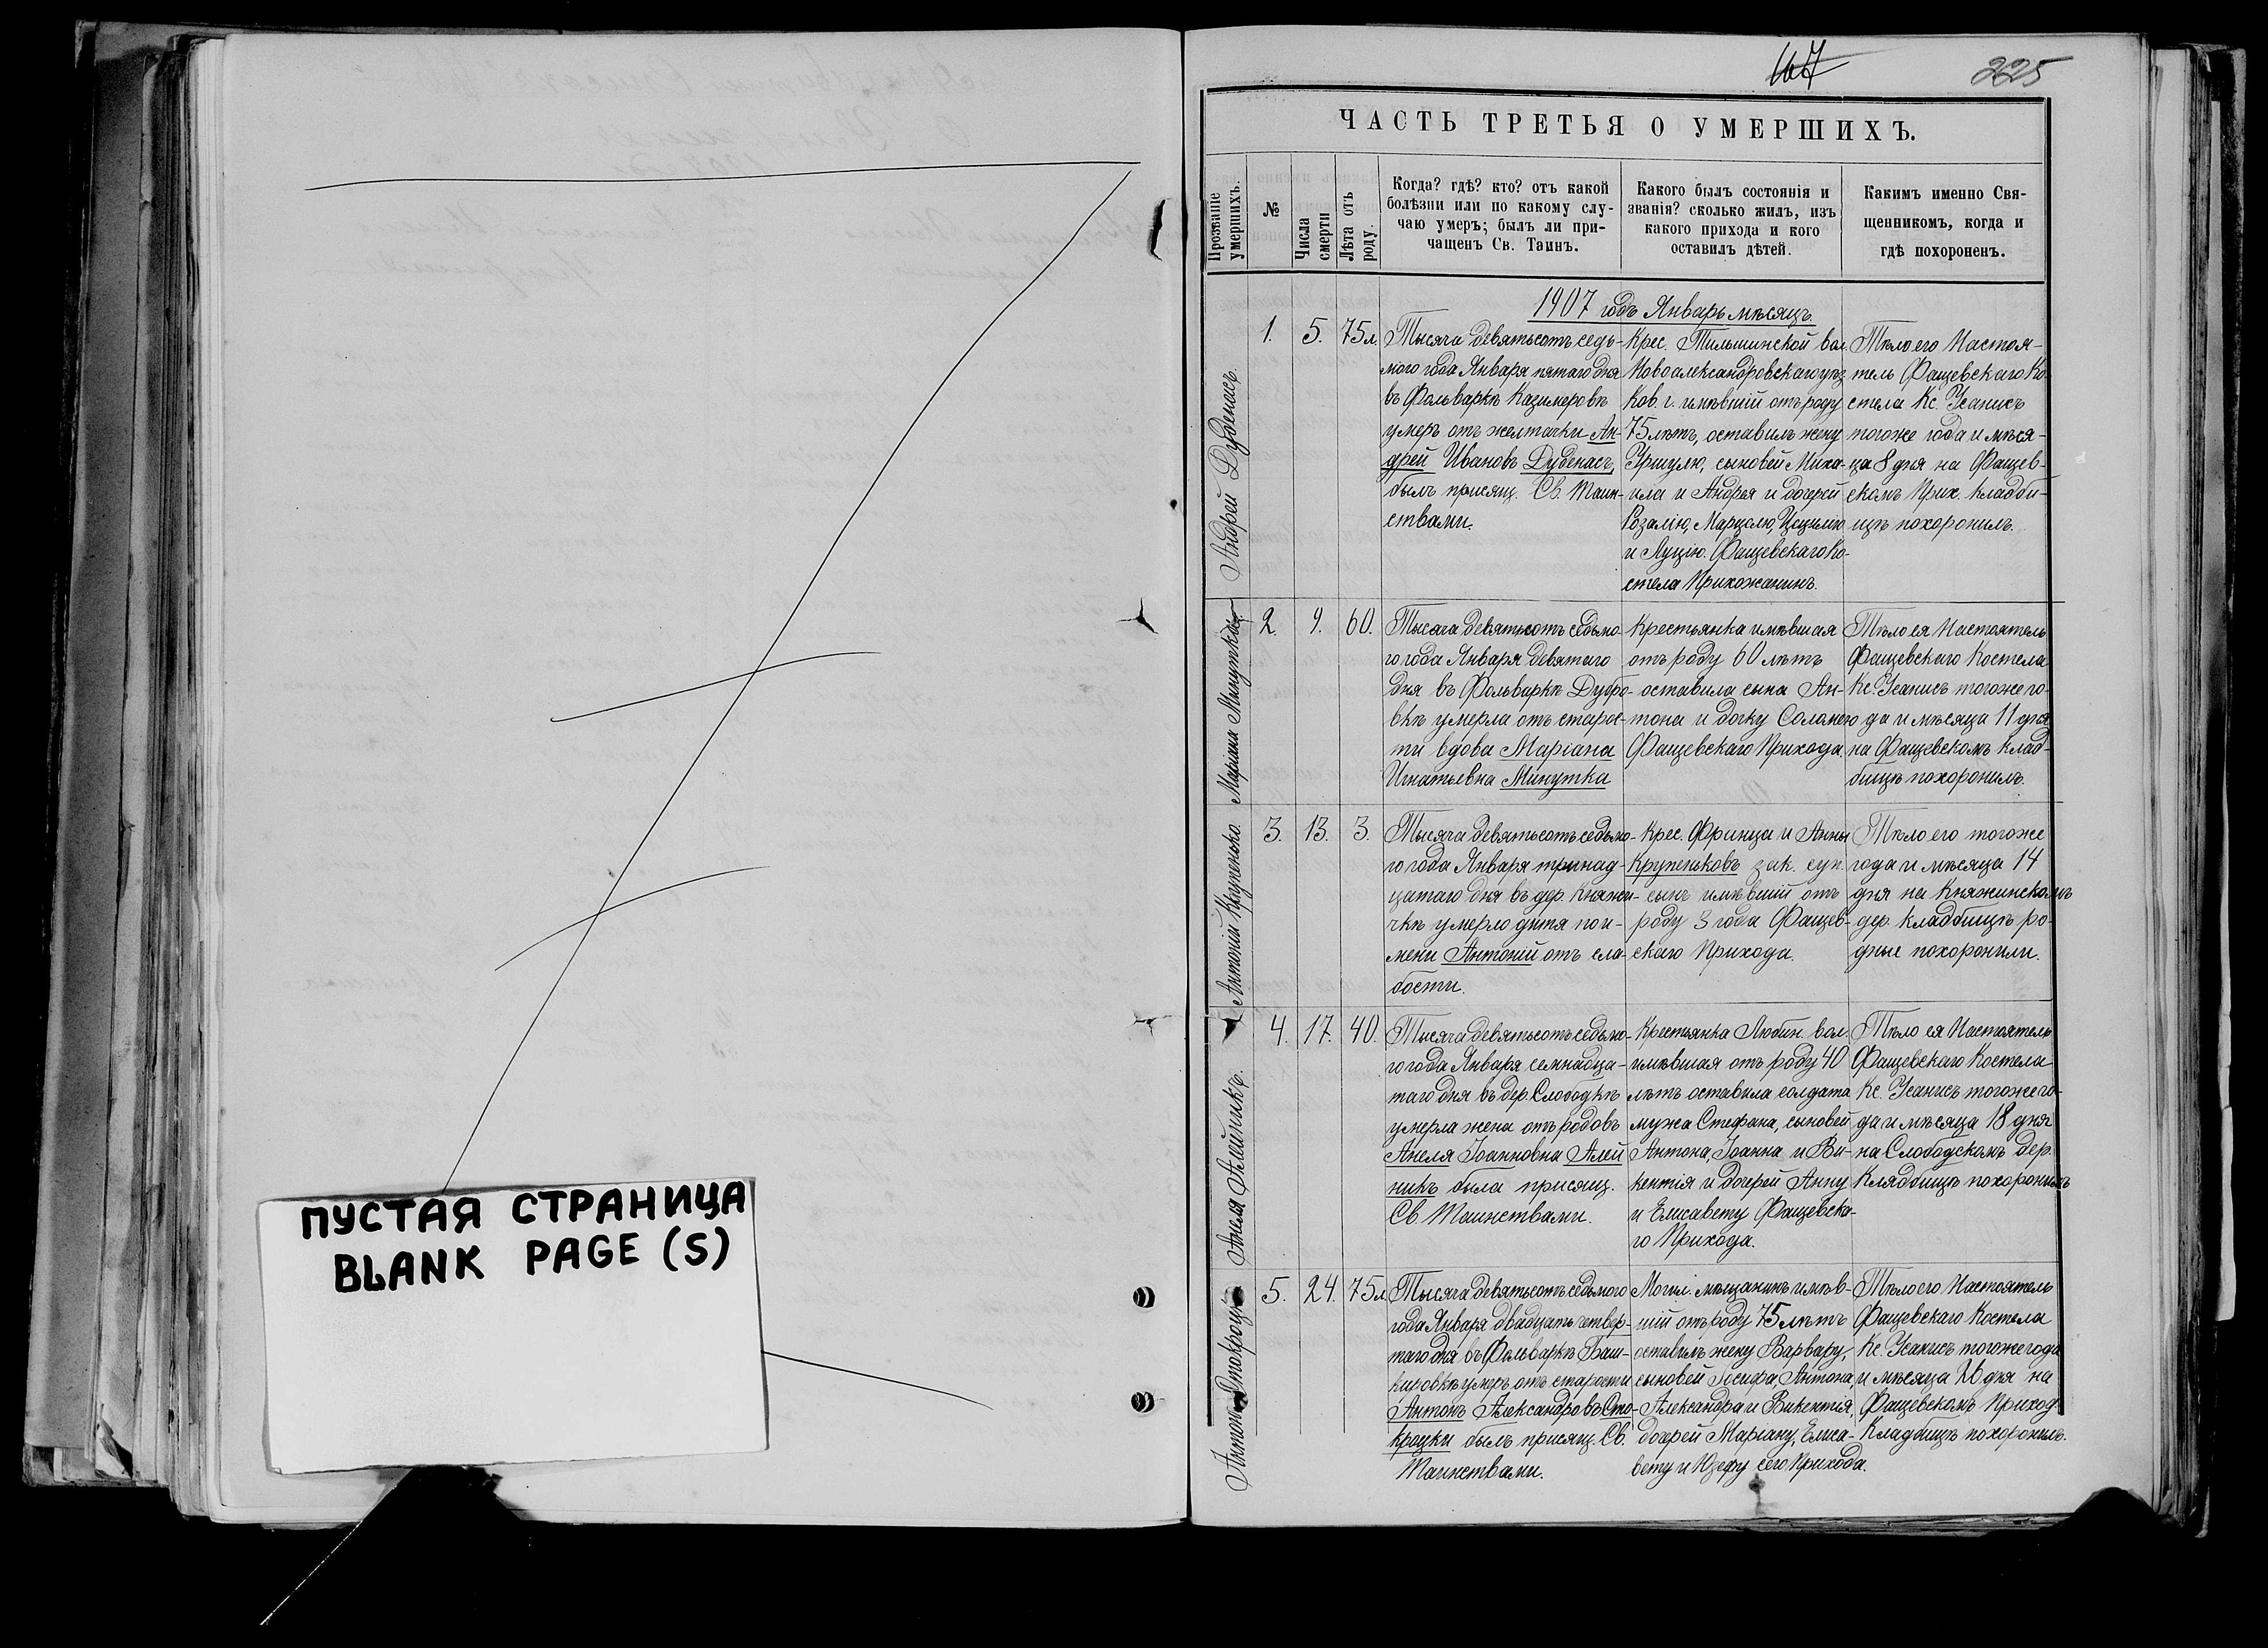 ПУСТАЯ СТРАНИЦА
BLANK PAGE (S)
167
225
ЧАСТЬ ТРЕТЬЯ О УМЕРШИХЪ.
Прозваніе умершихъ.
№
Числа смерти
Лѣта отъ роду.
Когда? гдѣ? кто? отъ какой
болѣзни или по какому слу-
чаю умеръ; былъ ли при-
чащенъ Св. Таинъ.
Какого былъ состоянія и
званія? сколько жилъ, изъ
какого прихода и кого
оставилъ дѣтей.
Какимъ именно Свя-
щенникомъ, когда и
гдѣ похороненъ.
1907 годъ Январь мѣсяцъ.
Андрей Дубенасъ.
1.
5.
75л.
Тысяча девятьсотъ седь-
мого года Января пятаго дня
въ Фольваркѣ Казимеровкѣ
умеръ отъ желтачки Ан-
дрей Ивановъ Дубенасъ,
былъ присящ. Св. Таин-
ствами.
Крес. Тильшинской вол.
Новоалександровскаго уѣз.
Ков. г. имѣвшій отъ роду
75 лѣтъ, оставилъ жену
Уршулю, сыновей Миха-
ила и Андрея и дочерей
Розалію, Марцелю, Цецилію
и Луцію. Фащевскаго Ко-
стела Прихожанинъ.
Тѣло его Настоя-
тель Фащевскаго Ко-
стела Кс. Усанисъ
тогоже года и мѣся-
ца 8 дня на Фащев-
скомъ Прих. кладби-
щѣ похоронилъ.
Маріана Минутка
2.
9.
60.
Тысяча девятьсотъ седьмо-
го года Января девятаго
дня въ Фольваркѣ Дубро-
вкѣ умерла отъ старос-
ти вдова Маріана
Игнатьевна Минутка
Крестьянка имѣвшая
отъ роду 60 лѣтъ
оставила сына Ан-
тона и дочку Соломею
Фащевскаго Прихода.
Тѣло ея Настоятель
Фащевскаго Костела
Кс. Усанисъ тогоже го-
да и мѣсяца 11 дня
на Фащевскомъ клад-
бищѣ похоронилъ.
Антоній Крупенько.
3.
13.
3.
Тысяча девятьсотъ седьмо-
го года Января тринад-
цатаго дня въ дер. Княжи-
чкѣ умерло дитя по и-
мени Антоній отъ сла-
бости.
Крес. Франца и Анны
Крупеньковъ зак. суп.
сынъ имѣвшій отъ
роду 3 года Фащев-
скаго Прихода.
Тѣло его тогоже
года и мѣсяца 14
дня на Княжинскомъ
дер. кладбищѣ ро-
дные похоронили.
Анеля Алейникъ.
4.
17.
40.
Тысяча девятьсотъ седьмо-
го года Января семнадца-
таго дня въ дер. Слободкѣ
умерла жена отъ родовъ
Анеля Іоанновна Алей
никъ была присящ.
Св. Таинствами.
Крестьянка Любин. вол.
имѣвшая отъ роду 40
лѣтъ оставила солдата
мужа Стефана, сыновей
Антона, Іоанна и Ви-
кентія и дочерей Анну
и Елисавету Фащевска-
го Прихода.
Тѣло ея Настоятель
Фащевскаго Костела
Кс. Усанисъ тогоже го-
да и мѣсяца 18 дня
на Слободскомъ дер.
Клядбищѣ похоронилъ
Антонъ Стокроцки
5.
24.
75л.
Тысяча девятьсотъ седьмого
года Января двадцать четвер-
таго дня въ Фольваркѣ Баш-
кировкѣ умеръ отъ старости
Антонъ Александровъ Сто-
кроцки былъ присящ. Св.
Таинствами.
Могил. мѣщанинъ имѣв-
шій отъ роду 75 лѣтъ
оставилъ жену Варвару,
сыновей Іосифа, Антона,
Александра и Викентія,
дочерей Маріану, Елиса-
вету и Юзефу сего Прихода.
Тѣло его Настоятель
Фащевскаго Костела
Кс. Усанисъ тогоже года
и мѣсяца 26 дня на
Фащевскомъ Приход.
Кладбищѣ похоронилъ.